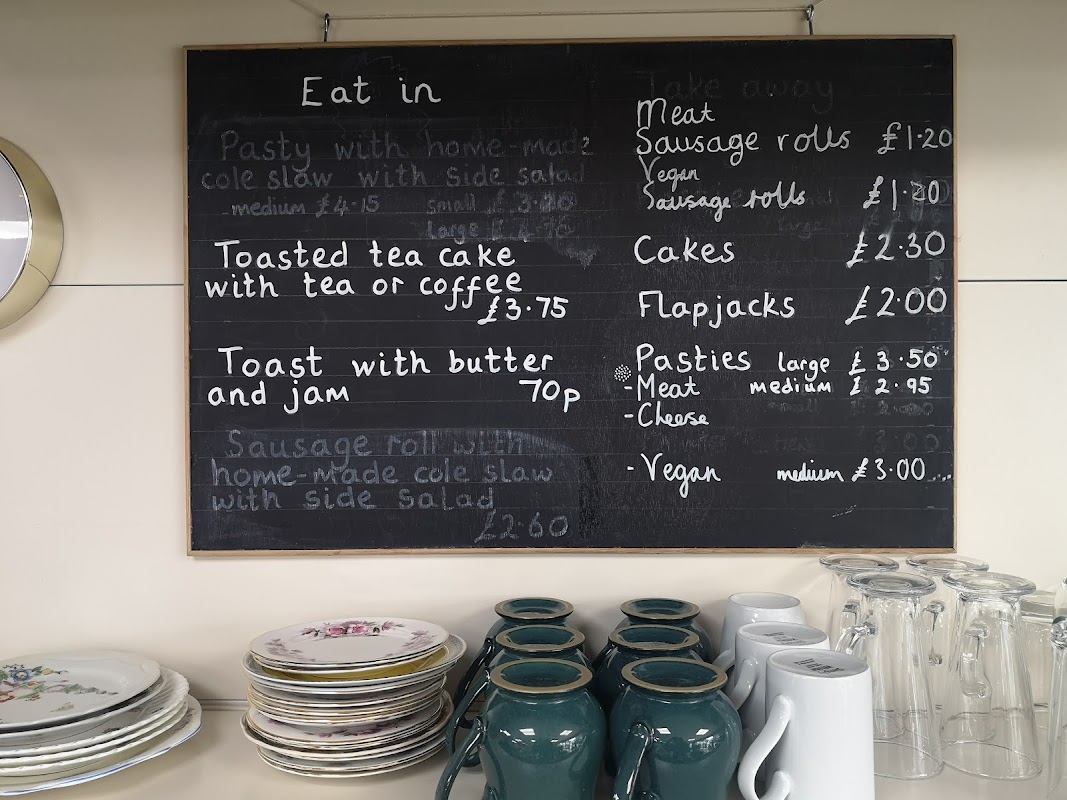 Eat in
Pasty with home-made
cole slaw with side salad
medium £4.15 small
large
Toasted tea cake
with tea or coffee
£3.75
Toast with butter
and jam 70p
Sausage roll with
home-made cole slaw
with side salad
£2.60
Take away
Meat
Sausage rolls £1.20
Vegan
Sausage rolls £1.20
Cakes £2.30
Flapjacks £2.00
Pasties large £3.50
-Meat medium £2.95
-Cheese small
-Vegan medium £3.00